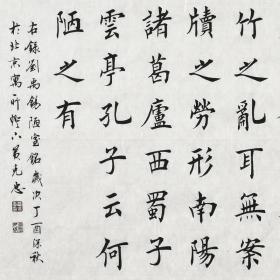 竹之亂耳無案
牘之勞形南陽
諸葛廬西蜀子
雲亭孔子云何
陋之有
右錄劉禹錫陋室銘歲次丁酉深秋
於北京寓所燈下